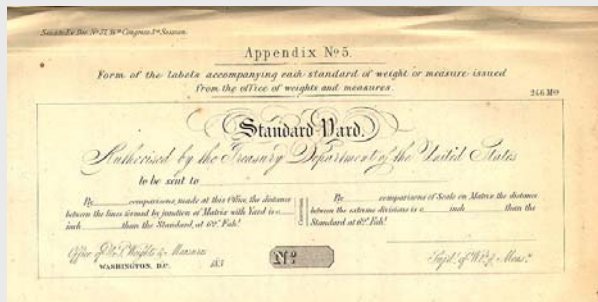 Senate Ex Doc No 27, Congress Session.
Appendix No 5.
Form of the labels accompanying each standard of weight or measure issued
from the office of weights and measures.
246 Mo
Standard Yard.
Authorised by the Treasury Department of the United States
to be sent to
By comparisons, made at this Office, the distance
between the lines formed by junction of Matrix with Yard is
inch than the Standard, at 62°. Fah!
By comparisons of Scale on Matrix the distance
between the extreme divisions is inch than the
Standard at 62°. Fah!
Office of Weights & Measures
WASHINGTON, D.C. 185
No
Supt. of Wts. & Meas.